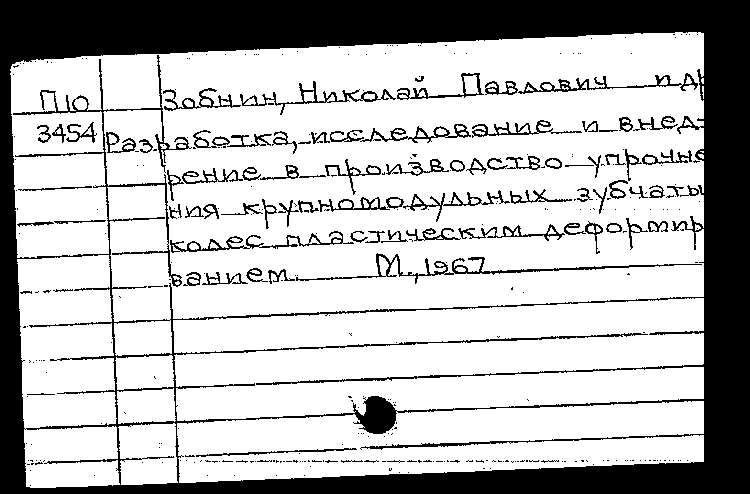 П10 Зобнин, Николай Павлович и др
3454 Разработка, исследование и внед-
рение в производство упрочне
ния крупномодульных зубчаты
колес пластическим деформир
ванием. М., 1967